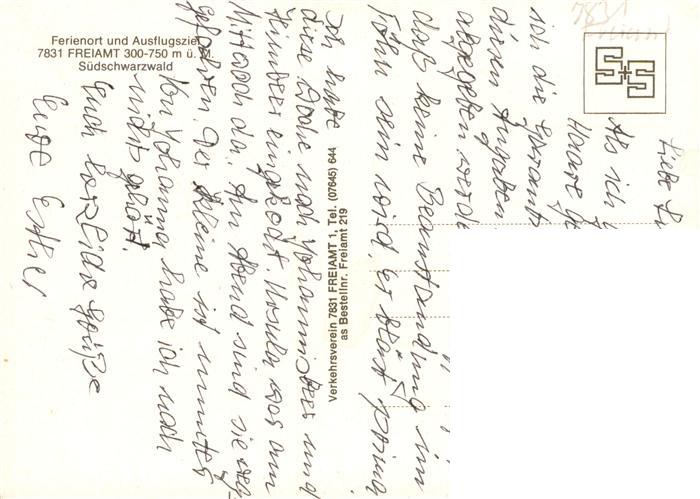 Ferienort und Ausflugsziel
7831 FREIAMT 300-750 m ü. M.
Südschwarzwald
Verkehrsverein 7831 FREIAMT 1, Tel. (07645) 644
as Bestellnr. Freiamt 219
7831
Liebe
Als ich
Haare
ich die
diesen Angaben
abgegeben werde
daß keine Beanstandung im
Föhn sein wird, er bläst prima
Ich habe
diese Woche noch Johannisbeer und
Himbeer eingekocht. Ursula war am
Mittwoch da. Am Abend sind sie weg-
gefahren. Der Kleine ist munter
Von Johanna habe ich noch
nichts gehört.
Euch herzliche Grüße
Eure Esther